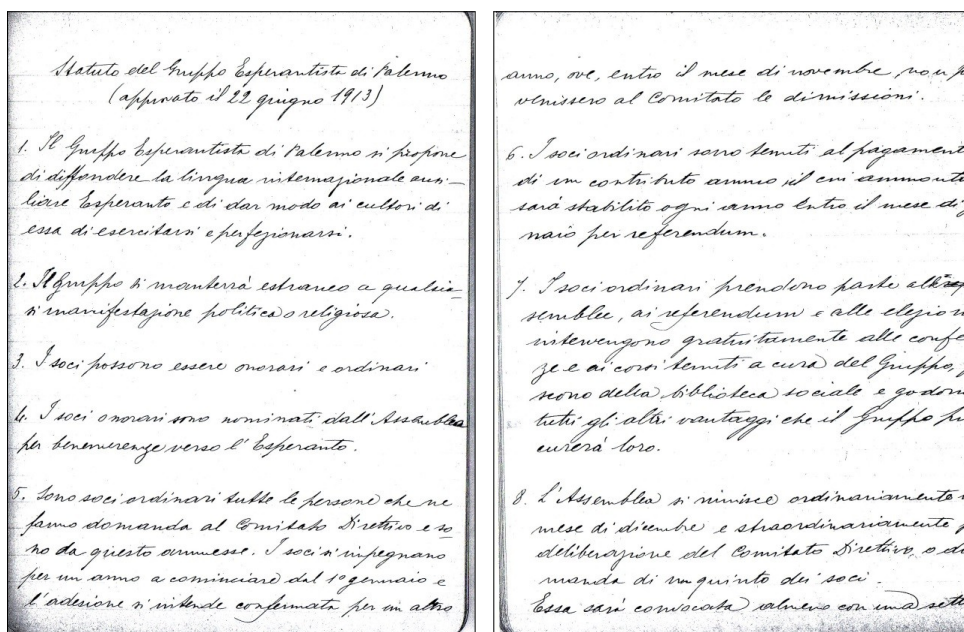 Statuto del Gruppo Esperantista di Palermo
(approvato il 22 giugno 1913)
1. Il Gruppo Esperantista di Palermo si propone
di diffondere la lingua internazionale ausi-
liare Esperanto e di dar modo ai cultori di
essa di esercitarsi e perfezionarsi.
2. Il Gruppo si manterrà estraneo a qualsia-
si manifestazione politica o religiosa.
3. I soci possono essere onorari e ordinari
4. I soci onorari sono nominati dall'Assemblea
per benemerenze verso l'Esperanto.
5. Sono soci ordinari tutte le persone che ne
fanno domanda al Comitato Direttivo e so-
no da questo ammesse. I soci si impegnano
per un anno a cominciare dal 1º gennaio e
l'adesione si intende confermata per un altro
anno, ove, entro il mese di novembre, non p
venissero al Comitato le dimissioni.
6. I soci ordinari sono tenuti al pagament
di un contributo annuo, il cui ammonta
sarà stabilito ogni anno entro il mese di g
naio per referendum.
7. I soci ordinari prendono parte all'as
semblee, ai referendum e alle elezion
intervengono gratuitamente alle confe
ze e ai corsi tenuti a cura del Gruppo,
scono della biblioteca sociale e godon
tutti gli altri vantaggi che il Gruppo pr
curerà loro.
8. L'Assemblea si riunisce ordinariamente
mese di dicembre e straordinariamente p
deliberazione del Comitato Direttivo, o d
manda di un quinto dei soci.
Essa sarà convocata almeno con una sett